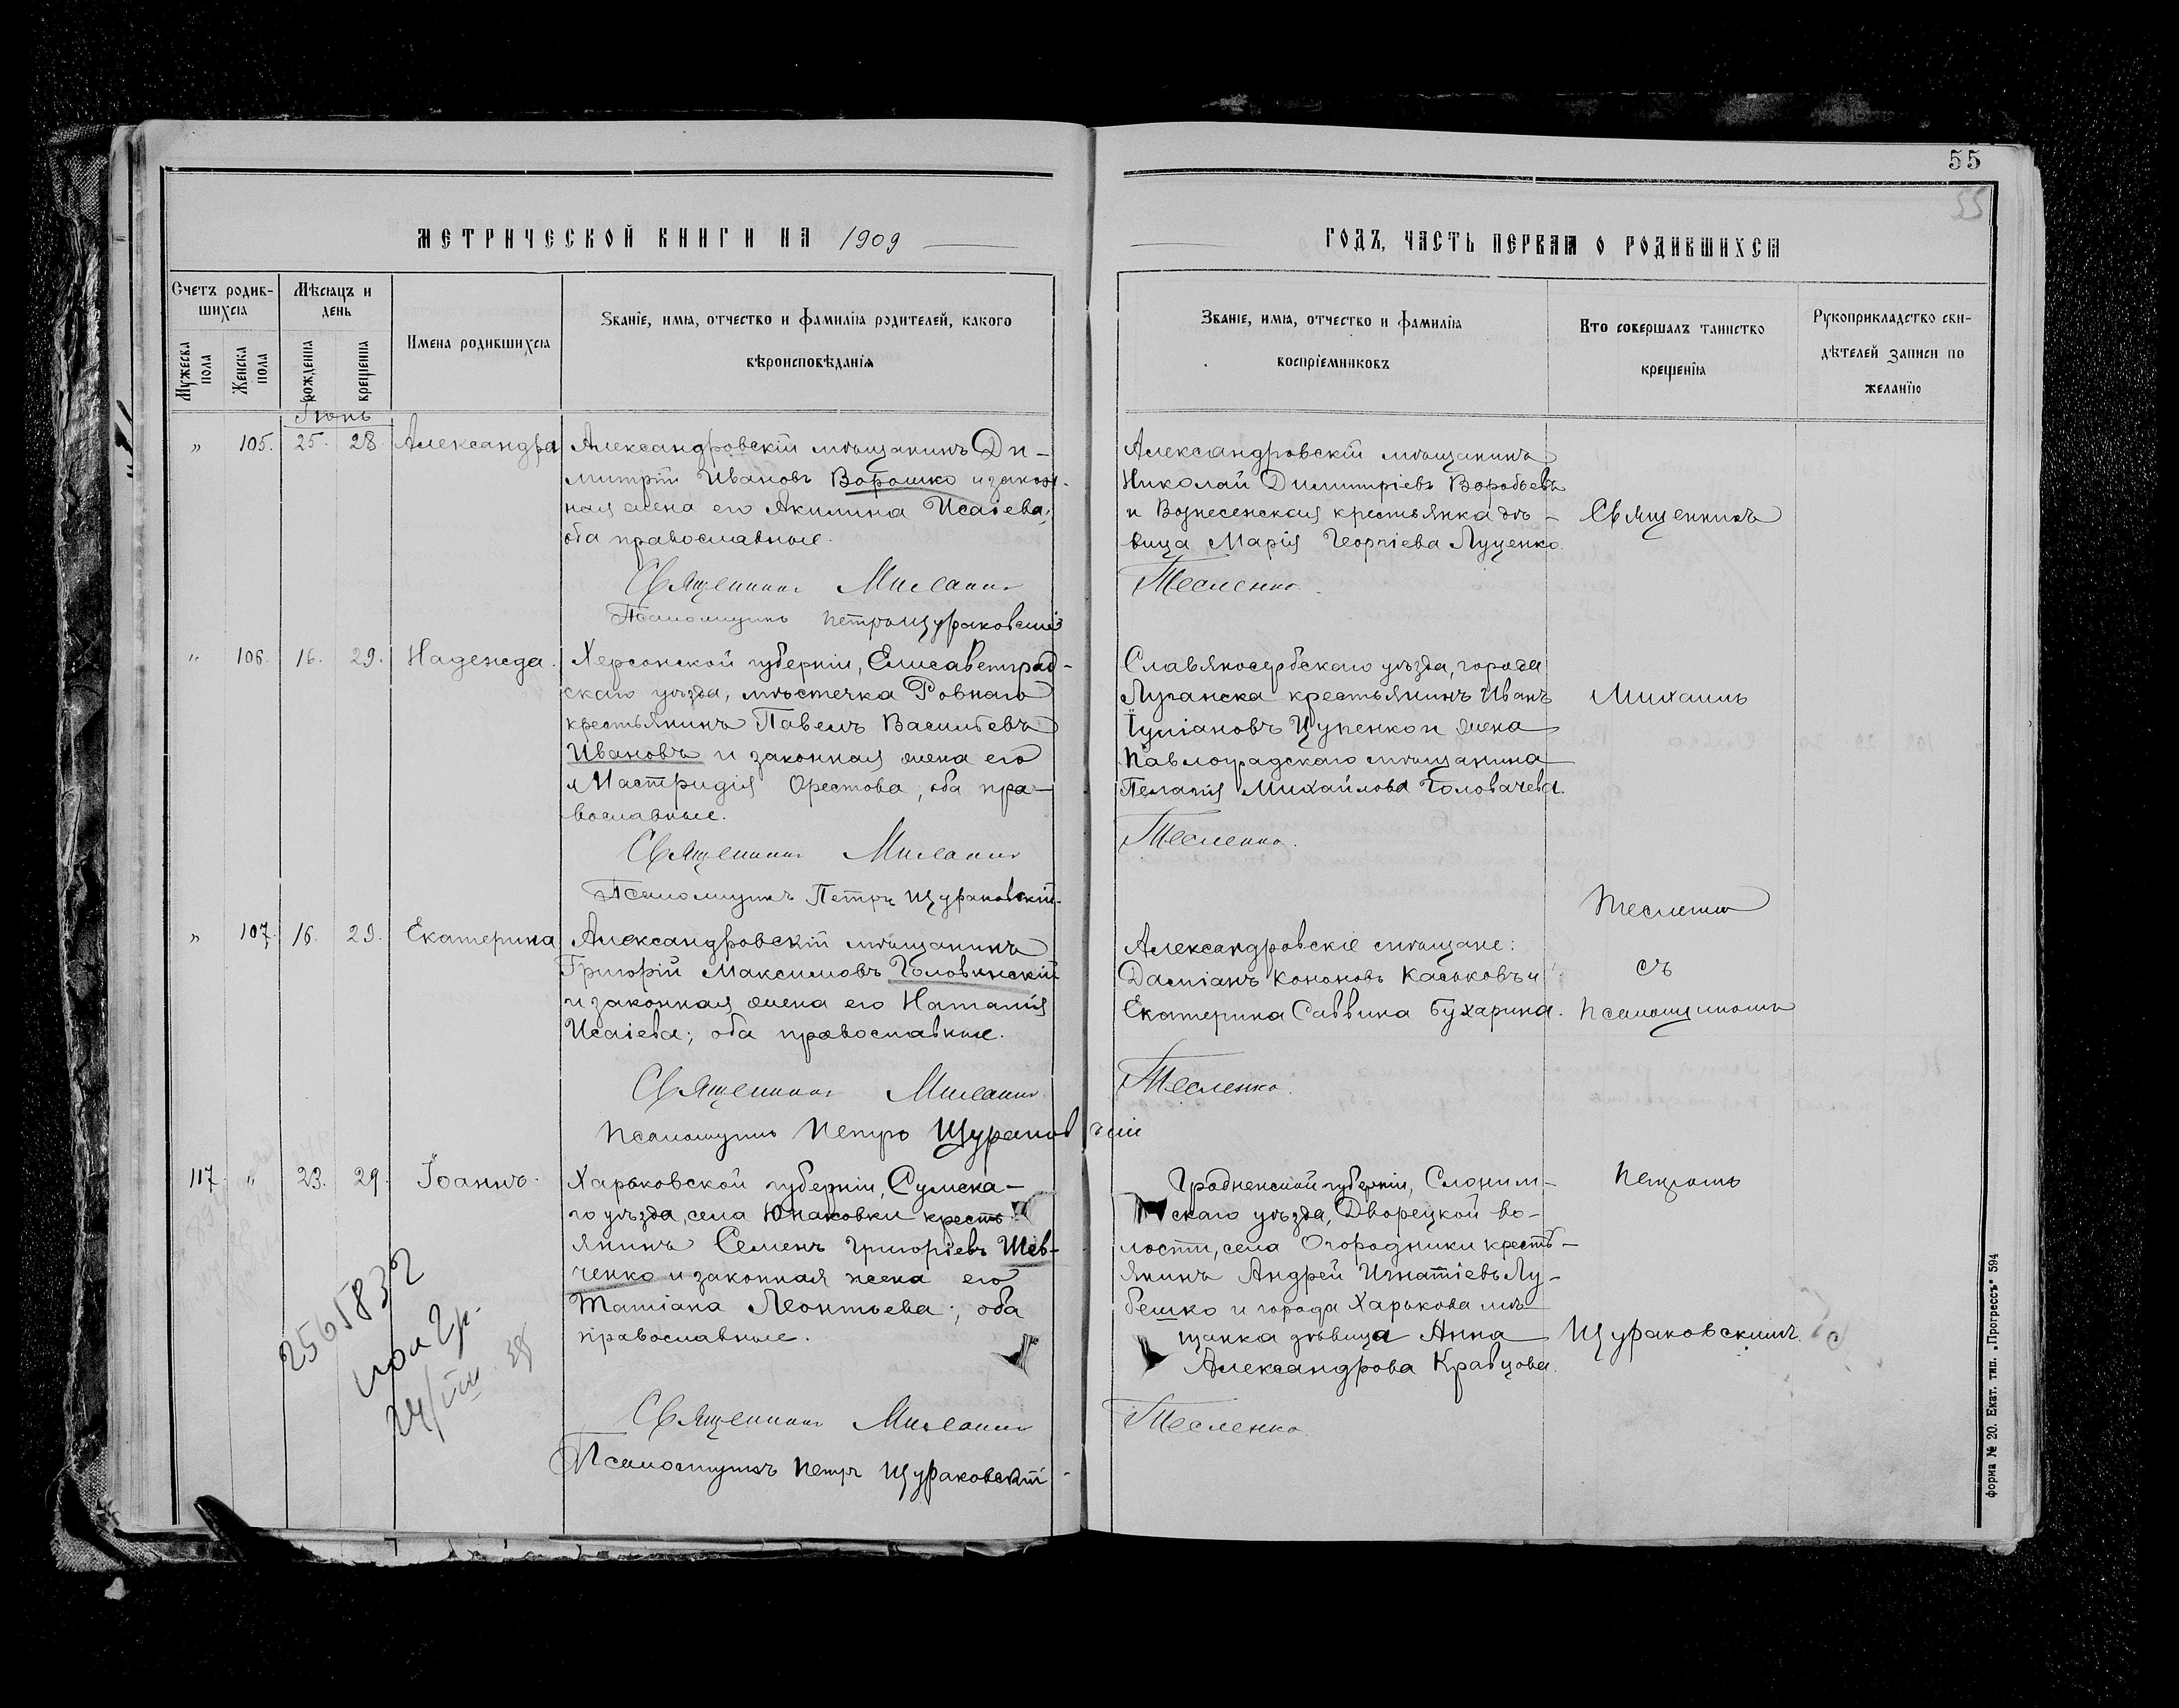 55
55
МЕТРИЧЕСКОЙ КНИГИ НА 1909
Счетъ родив-
шихся
Мѣсяцъ и
день
Имена родившихся
Званіе, имя, отчество и фамилія родителей, какого
вѣроисповѣданія
Мужеска
пола
Женска
пола
рожденія
крещенія
Іюнь
" 105. 25. 28. Александра
Александровскій мѣщанинъ Ди-
митрій Ивановъ Ворошко и закон-
ная жена его Акилина Исаіева;
оба православные.
Священникъ Михаилъ
Псаломщикъ Петръ Щураковскій
" 106. 16. 29. Надежда.
Херсонской губерніи, Елисаветград-
скаго уѣзда, мѣстечка Ровнаго
крестьянинъ Павелъ Васильевъ
Ивановъ и законная жена его
Мастридія Орестова, оба пра-
вославные.
Священникъ Михаилъ
Псаломщикъ Петръ Щураковскій.
" 107. 16. 29. Екатерина
Александровскій мѣщанинъ
Григорій Максимовъ Головинскій
и законная жена его Наталія
Исаіева; оба православные.
Священникъ Михаилъ
Псаломщикъ Петръ Щураковскій
117. " 23. 29. Іоаннъ.
Харьковской губерніи, Сумска-
го уѣзда, села Юнаковки кресть-
янинъ Семенъ Григоріевъ Шев-
ченко и законная жена его
Татіана Леонтьева; оба
православные.
Священникъ Михаилъ
Псаломщикъ Петръ Щураковскій
2561832
24/VIII 38
ГОДЪ, ЧАСТЬ ПЕРВАЯ О РОДИВШИХСЯ
Званіе, имя, отчество и фамилія
воспріемниковъ
Кто совершалъ таинство
крещенія
Рукоприкладство сви-
дѣтелей записи по
желанію
Александровскій мѣщанинъ
Николай Димитріевъ Воробьевъ
и Вознесенская крестьянка дѣ-
вица Марія Георгіева Луценко.
Тесленко.
Славяносербскаго уѣзда, города
Луганска крестьянинъ Иванъ
Іуліановъ Цупенко и жена
Павлоградскаго мѣщанина
Пелагія Михайлова Головачева.
Тесленко.
Александровскіе мѣщане:
Даміанъ Кононовъ Каськовъ и
Екатерина Саввина Бухарина.
Тесленко.
Гродненской губерніи, Слоним-
скаго уѣзда, Дворецкой во-
лости, села Огородники кресть-
янинъ Андрей Игнатіевъ Лу-
бешко и города Харькова мѣ-
щанка дѣвица Анна
Александрова Кравцова.
Тесленко.
Священникъ
Михаилъ
Тесленко
съ
псаломщикомъ
Петромъ
Щураковскимъ.
форма № 20. Екат. тип. „Прогрессъ" 594